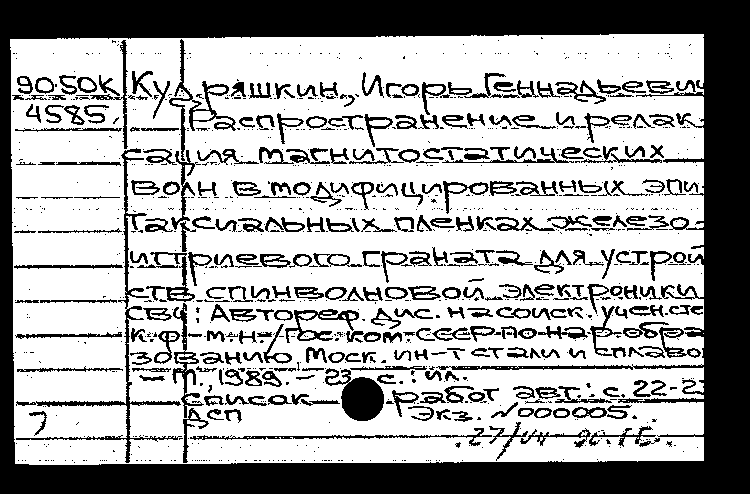 90-50К Кудряшкин, Игорь Геннадьевич
4585, Распространение и релак-
сация магнитостатических
волн в модифицированных эпи-
таксиальных пленках железо-
иттриевого граната для устрой
ств спинволновой электроники
СВЧ: Автореф. дис. на соиск. учен. сте
к.ф.-м.н./Гос. ком. СССР по нар. обра
зованию, Моск. ин-т стали и сплаво
— М., 1989. – 23 с.: ил.
Список работ авт.: с. 22-23
ДСП Экз. №000005.